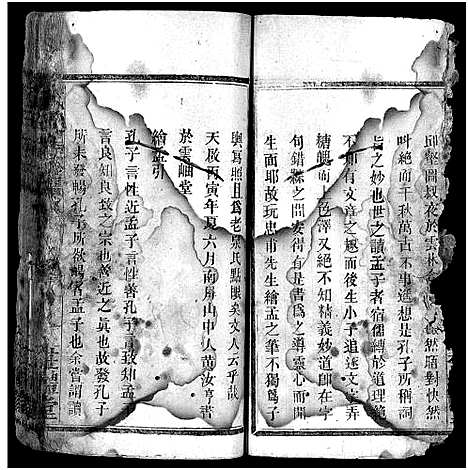 邱壑圖以夜於雲林 然晤對快然
叫絕而千秋萬古不事遑想是孔子所稱詞
旨之妙也世之讀孟子者宿儒縛於道理
不知有文章之趣而後生小子追逐文字弄
糟魄而 色澤又絕不知精義妙道即在字
句錯縣之間安得有是書爲之導靈心而開
生面耶故玩忠甫先生繪孟之筆不獨爲子
輿寫照且爲老泉氏點睛矣文人云乎哉
天啟丙寅年夏六月南屏山中人黄汝亨書
於雲岫堂
繪孟引
孔子言性近孟子言性善孔子言致知孟子
言良知良致之宗也善近之眞也故發孔子
所未發暢孔子所欲暢者孟子也余嘗謂讀